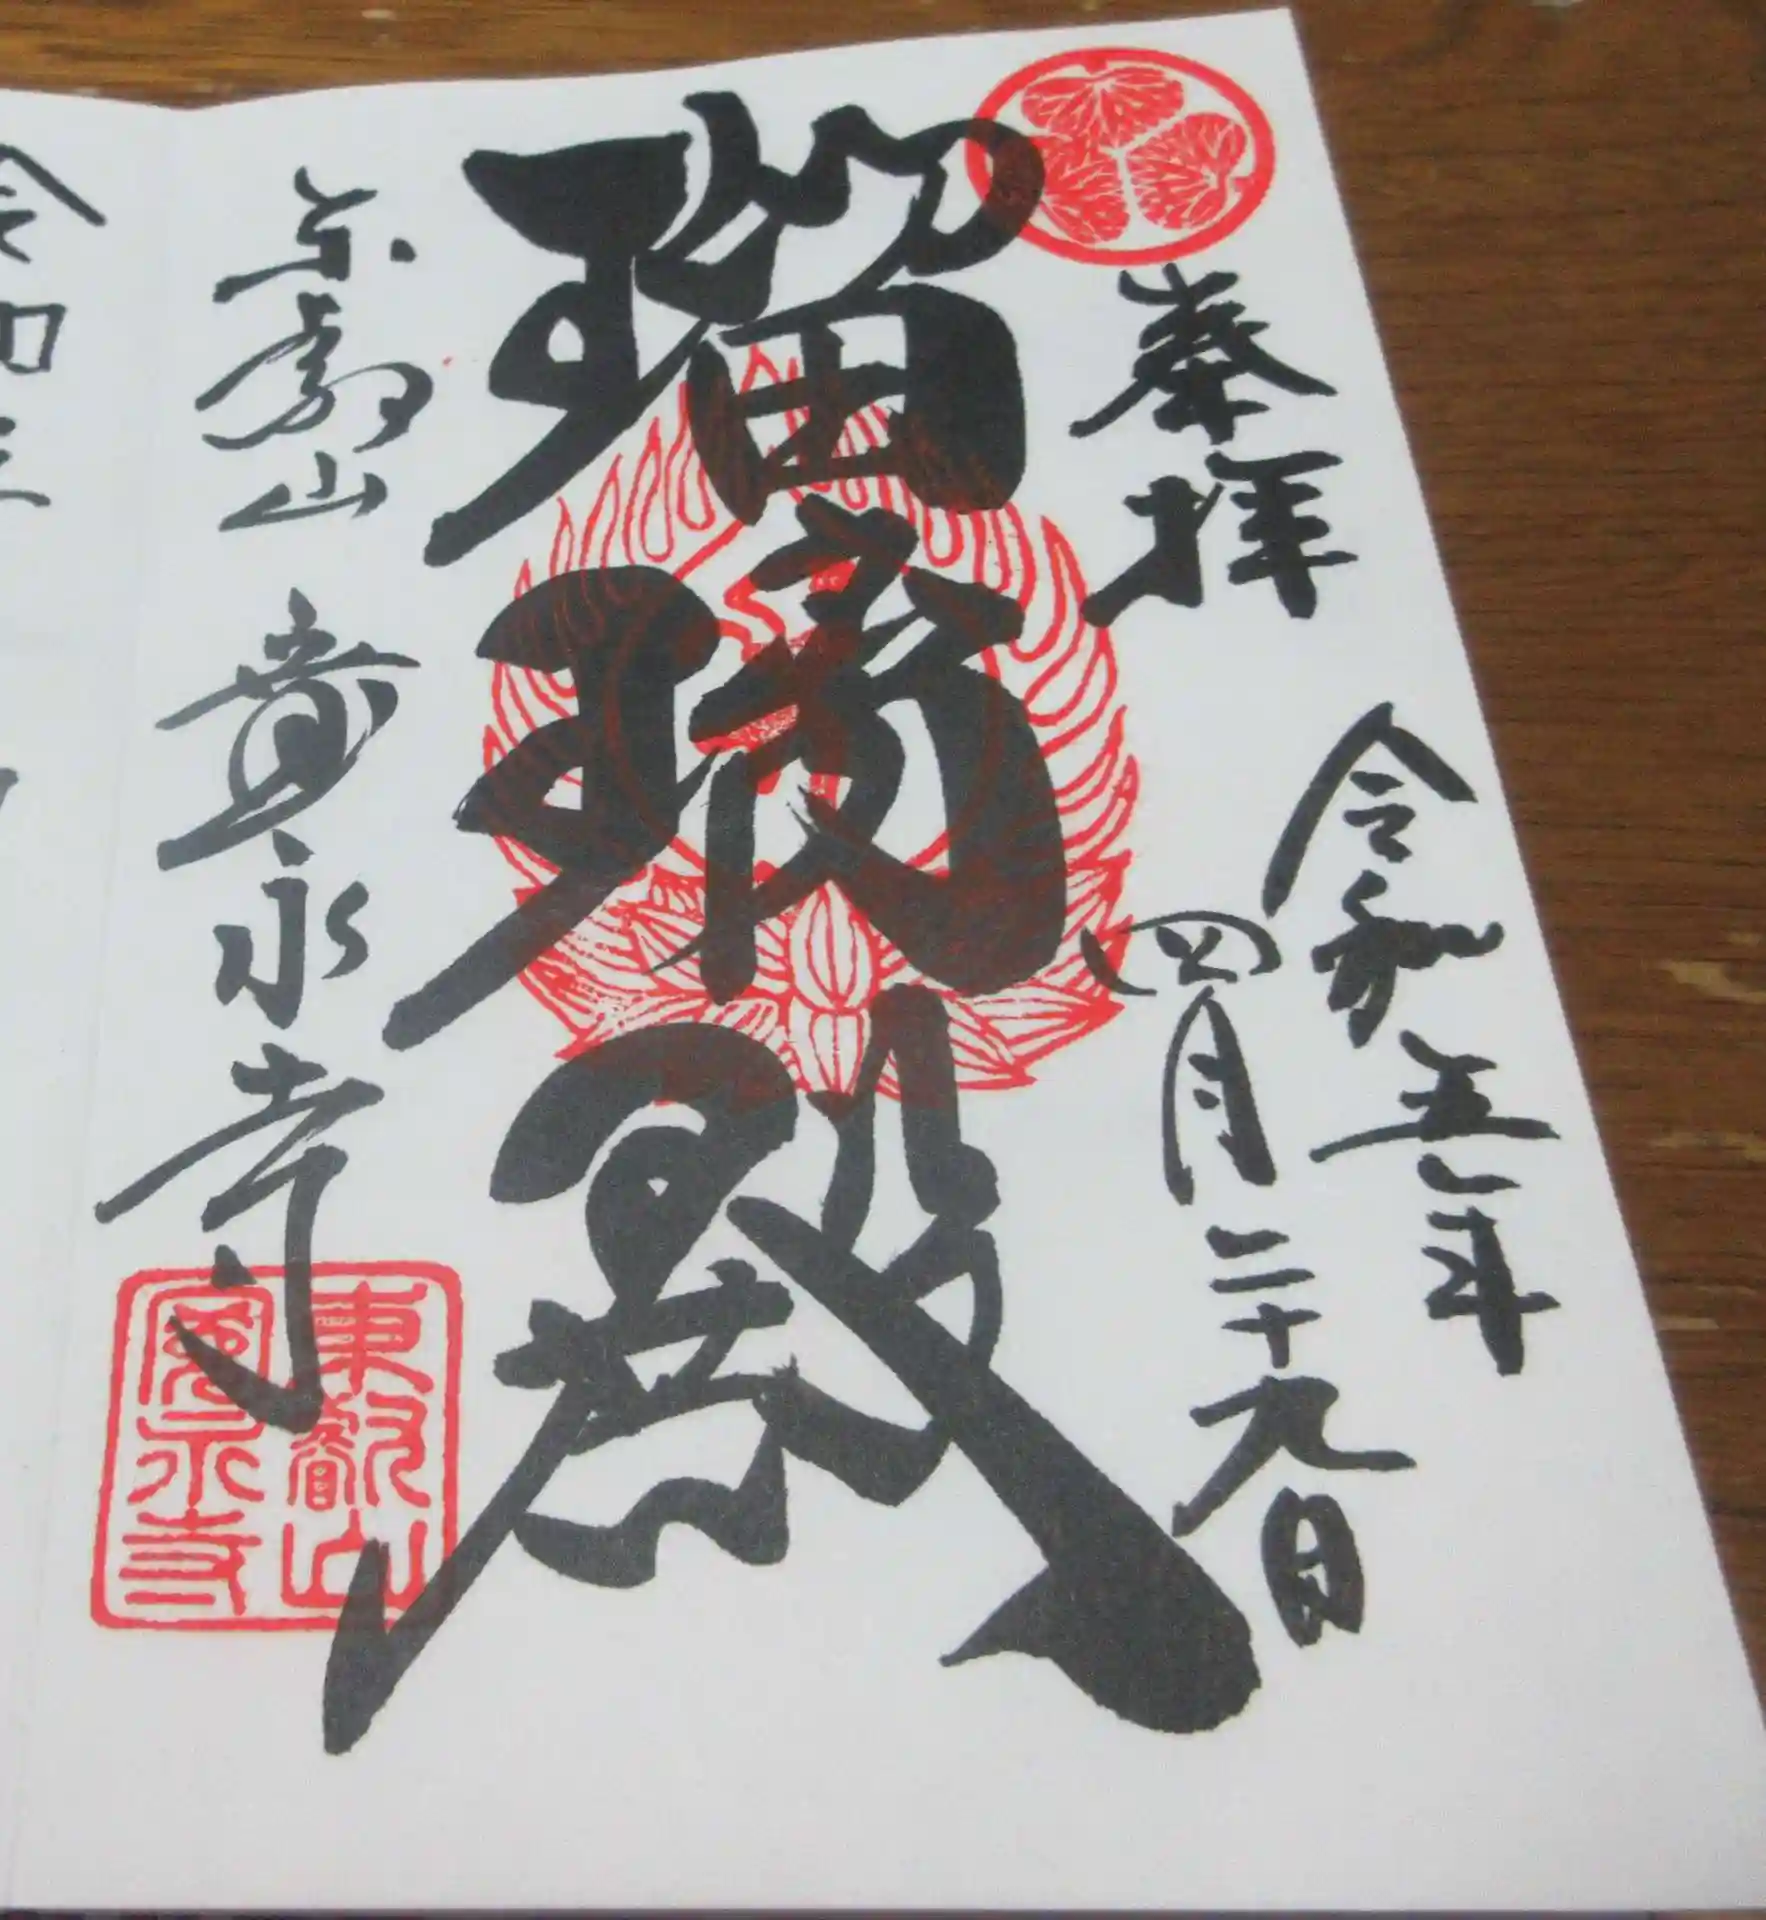 奉拝
令和五年
四月二十九日
瑠璃殿
東叡山 寛永寺
東叡山
寛永寺